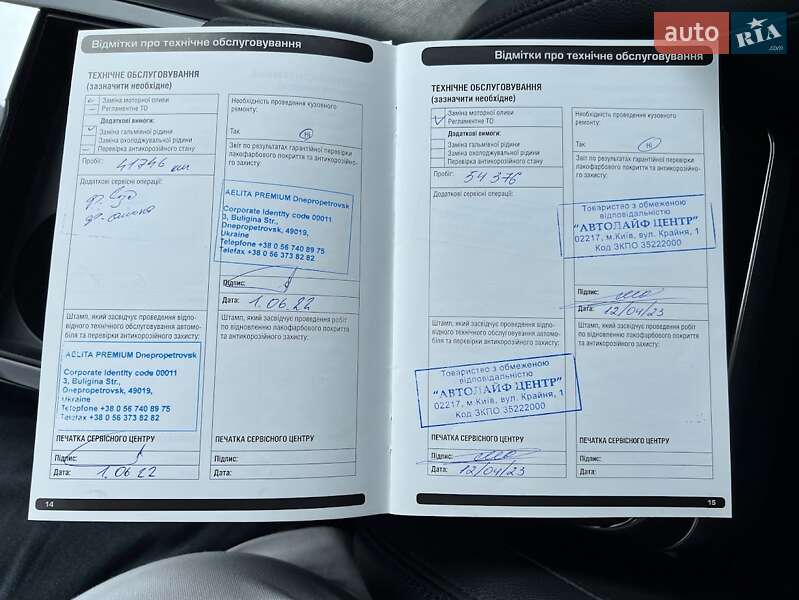 auto RIA
Відмітки про технічне обслуговування
ТЕХНІЧНЕ ОБСЛУГОВУВАННЯ
(зазначити необхідне)
Заміна моторної оливи
Регламентне ТО
Додаткові вимоги:
Заміна гальмівної рідини
Заміна охолоджувальної рідини
Перевірка антикорозійного стану
Пробіг: 41746 км
Додаткові сервісні операції:
Штамп, який засвідчує проведення відпо-
відного технічного обслуговування автомо-
біля та перевірки антикорозійного захисту:
AELITA PREMIUM Dnepropetrovsk
Corporate Identity code 00011
3, Buligina Str.,
Dnepropetrovsk, 49019,
Ukraine
Telephone +38 0 56 740 89 75
Telefax +38 0 56 373 82 82
ПЕЧАТКА СЕРВІСНОГО ЦЕНТРУ
Підпис:
Дата: 1.06.22
Необхідність проведення кузовного
ремонту:
Так Ні
Звіт по результатах гарантійної перевірки
лакофарбового покриття та антикорозій-
ного захисту:
AELITA PREMIUM Dnepropetrovsk
Corporate Identity code 00011
3, Buligina Str.,
Dnepropetrovsk, 49019,
Ukraine
Telephone +38 0 56 740 89 75
Telefax +38 0 56 373 82 82
Підпис:
Дата: 1.06.22
Штамп, який засвідчує проведення робіт
по відновленню лакофарбового покриття
та антикорозійного захисту:
ПЕЧАТКА СЕРВІСНОГО ЦЕНТРУ
Підпис:
Дата:
14
Відмітки про технічне обслуговування
ТЕХНІЧНЕ ОБСЛУГОВУВАННЯ
(зазначити необхідне)
Заміна моторної оливи
Регламентне ТО
Додаткові вимоги:
Заміна гальмівної рідини
Заміна охолоджувальної рідини
Перевірка антикорозійного стану
Пробіг: 54 376
Додаткові сервісні операції:
Штамп, який засвідчує проведення відпо-
відного технічного обслуговування автомо-
біля та перевірки антикорозійного захисту:
Товариство з обмеженою
відповідальністю
"АВТОЛАЙФ ЦЕНТР"
02217, м.Київ, вул. Крайня, 1
Код ЗКПО 35222000
ПЕЧАТКА СЕРВІСНОГО ЦЕНТРУ
Підпис:
Дата: 12/04/23
Необхідність проведення кузовного
ремонту:
Так Ні
Звіт по результатах гарантійної перевірки
лакофарбового покриття та антикорозій-
ного захисту:
Товариство з обмеженою
відповідальністю
"АВТОЛАЙФ ЦЕНТР"
02217, м.Київ, вул. Крайня, 1
Код ЗКПО 35222000
Підпис:
Дата: 12/04/23
Штамп, який засвідчує проведення робіт
по відновленню лакофарбового покриття
та антикорозійного захисту:
ПЕЧАТКА СЕРВІСНОГО ЦЕНТРУ
Підпис:
Дата:
15